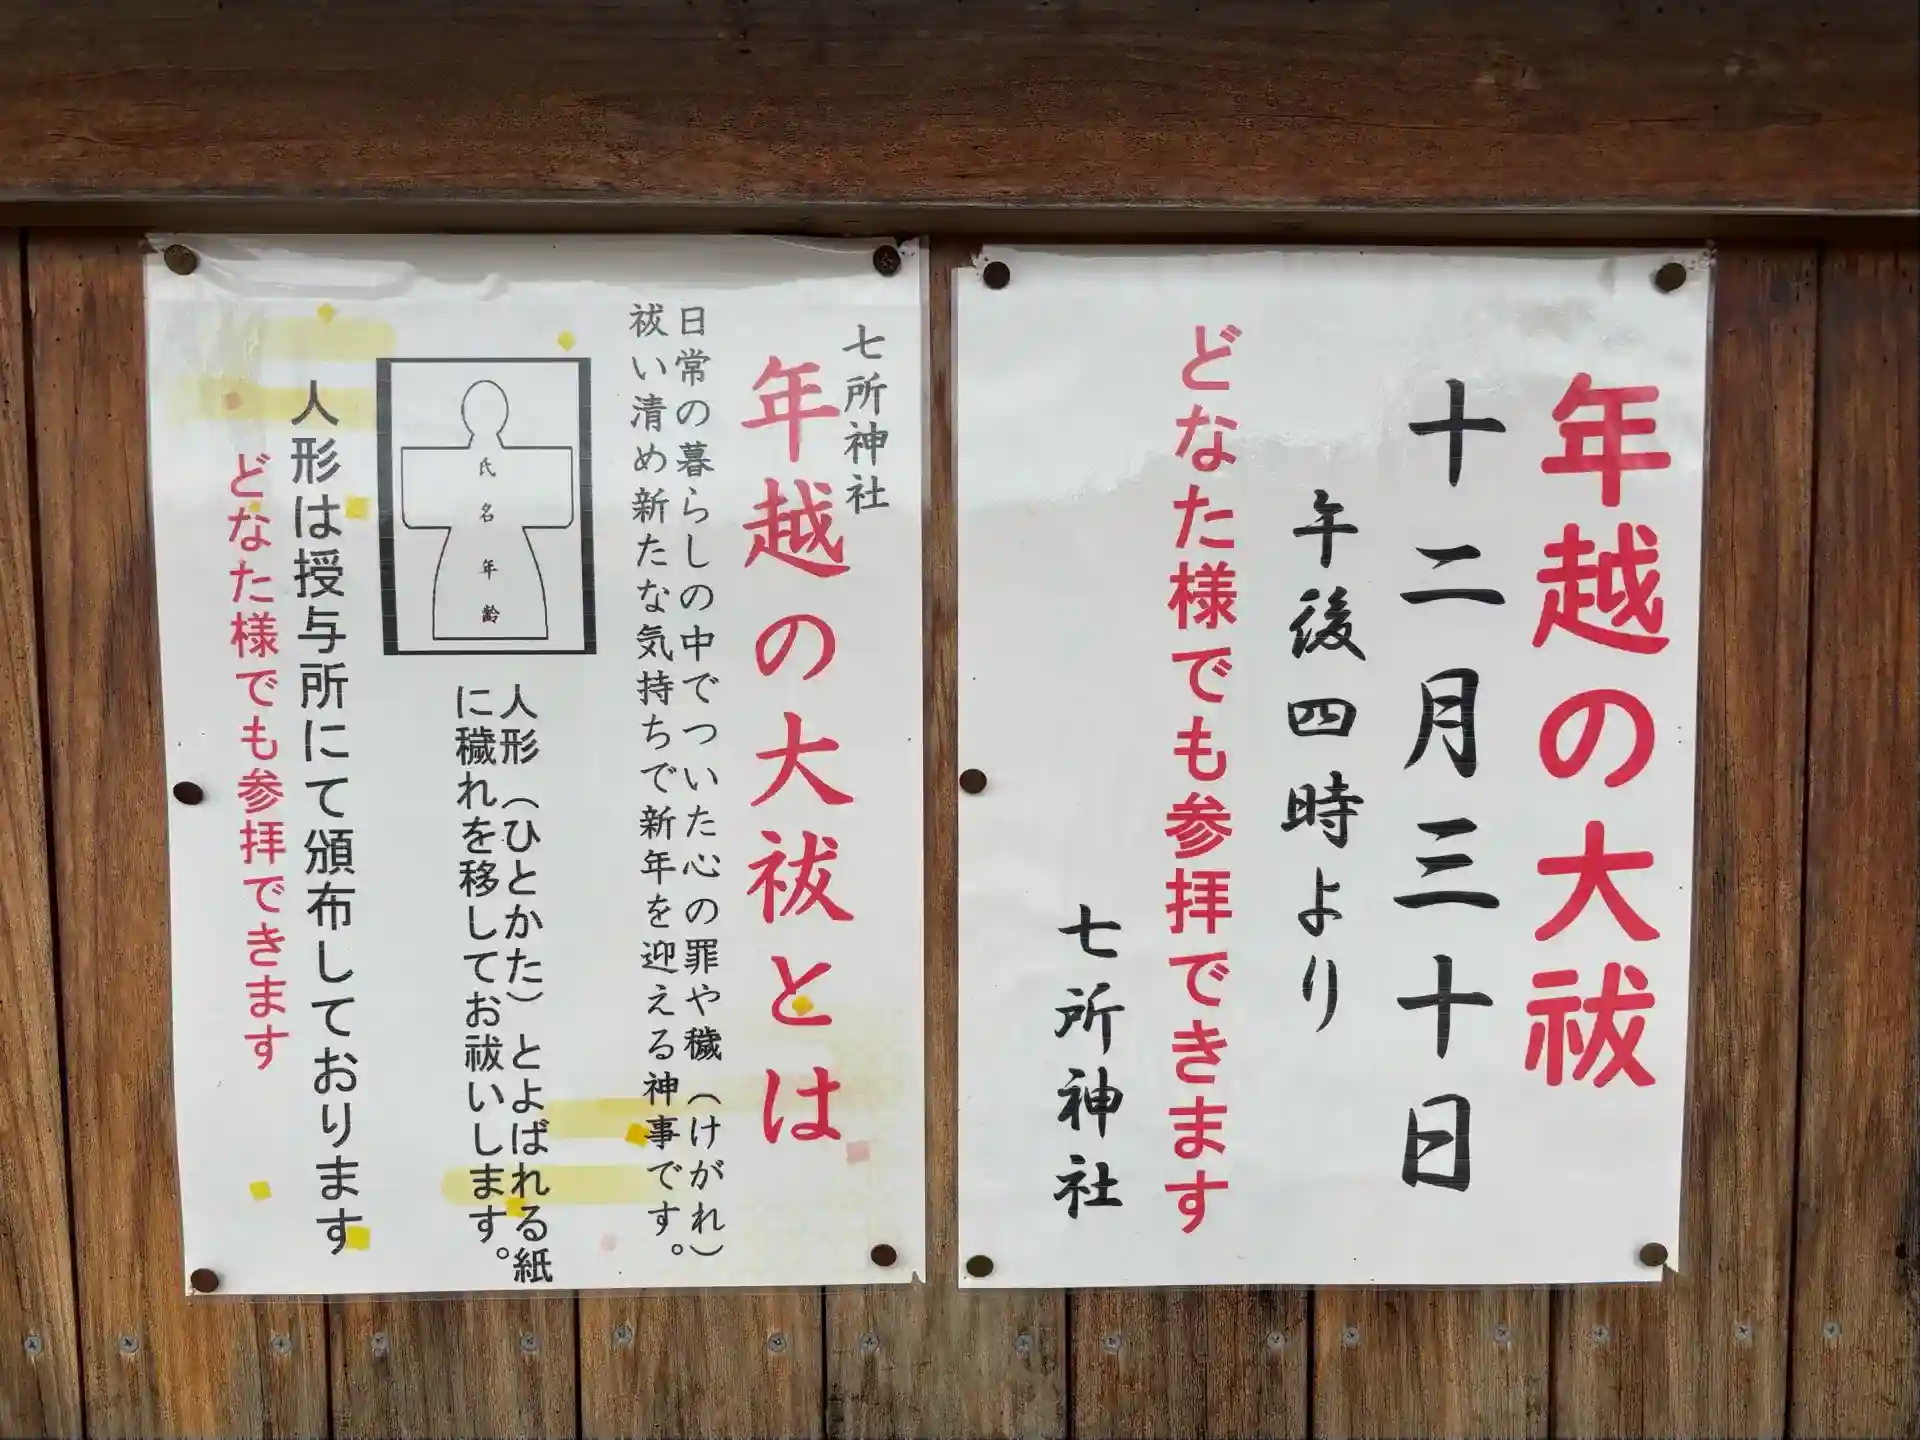 年越の大祓
十二月三十日
午後四時より
どなた様でも参拝できます
七所神社
七所神社
年越の大祓とは
日常の暮らしの中でついた心の罪や穢（けがれ）
祓い清め新たな気持ちで新年を迎える神事です。
氏名年齢
人形（ひとかた）とよばれる紙
に穢れを移してお祓いします。
人形は授与所にて頒布しております
どなた様でも参拝できます